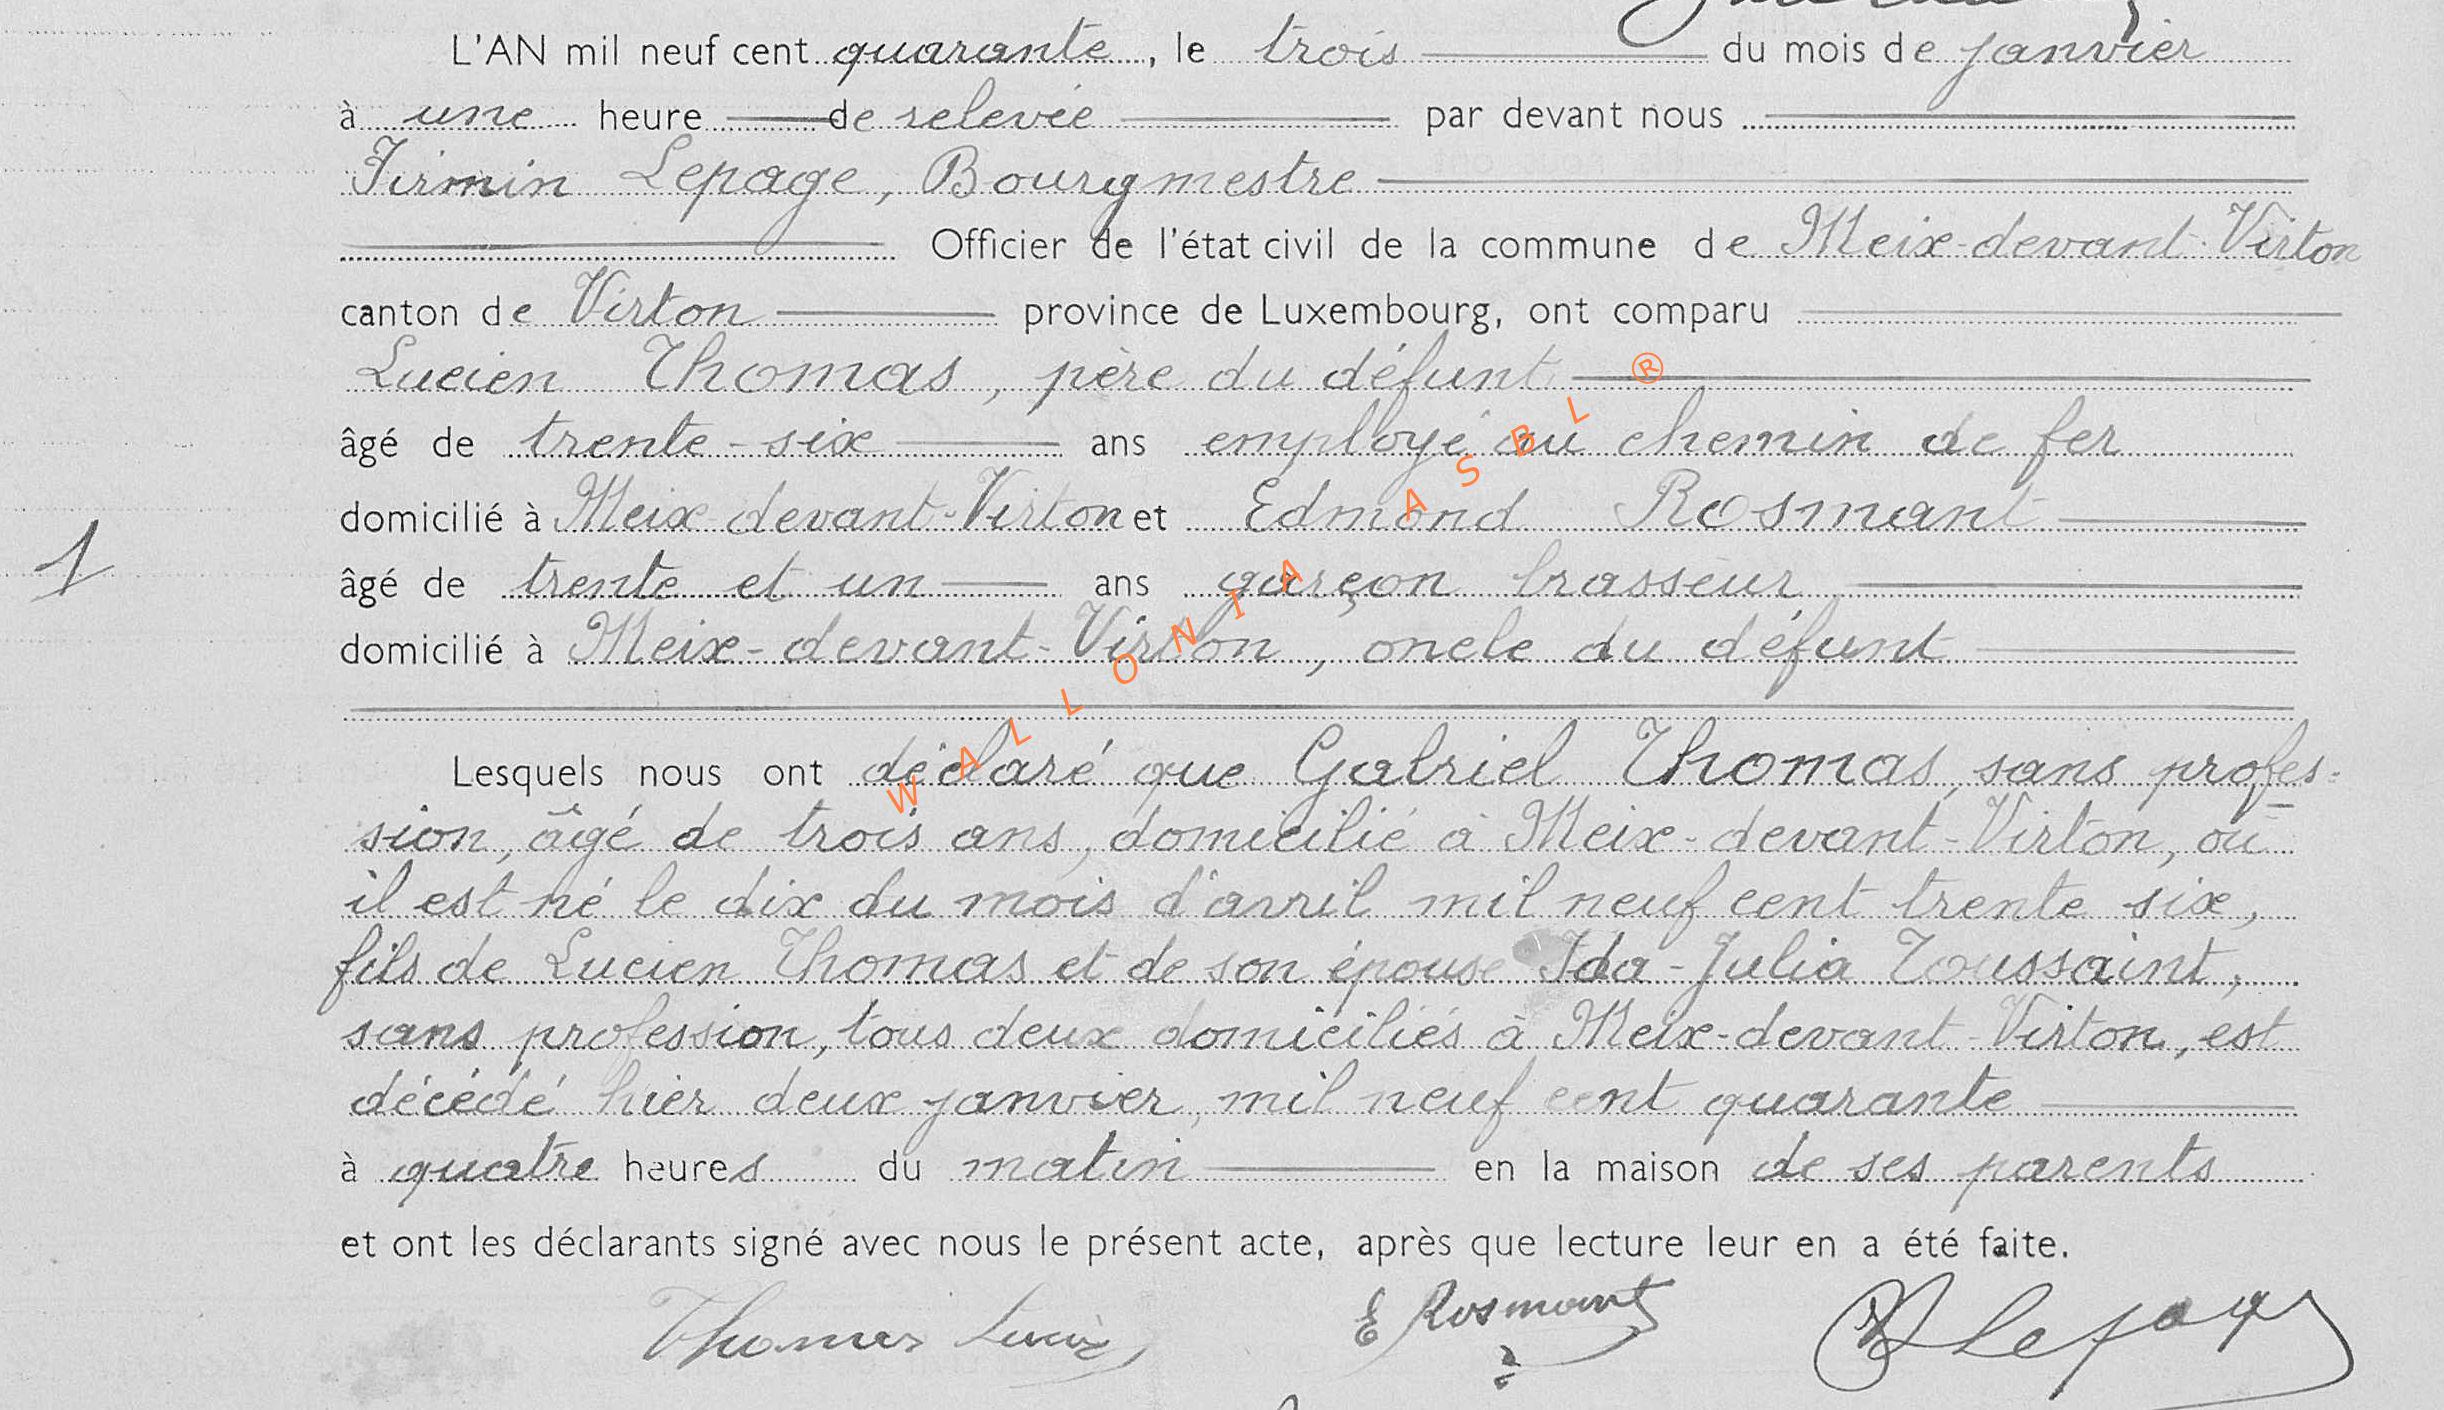 L'AN mil neuf cent quarante, le trois du mois de janvier
à une heure de relevée par devant nous
Firmin Lepage, Bourgmestre
Officier de l'état civil de la commune de Meix-devant-Virton
canton de Virton province de Luxembourg, ont comparu
Lucien Thomas, père du défunt
âgé de trente-six ans employé au chemin de fer
domicilié à Meix devant-Virton et Edmond Rosmant
1
âgé de trente et un ans garçon brasseur
domicilié à Meix-devant-Virton, oncle du défunt
Lesquels nous ont déclaré que Gabriel Thomas, sans profes-
sion, âgé de trois ans, domicilié à Meix-devant-Virton, où
il est né le dix du mois d'avril mil neuf cent trente six,
fils de Lucien Thomas et de son épouse Ida-Julia Toussaint,
sans profession, tous deux domiciliés à Meix-devant-Virton, est
décédé hier deux janvier, mil neuf cent quarante
à quatre heures du matin en la maison de ses parents
et ont les déclarants signé avec nous le présent acte, après que lecture leur en a été faite.
Thomas Lucien E Rosmant Lepage
WALLONIA ASBL ®